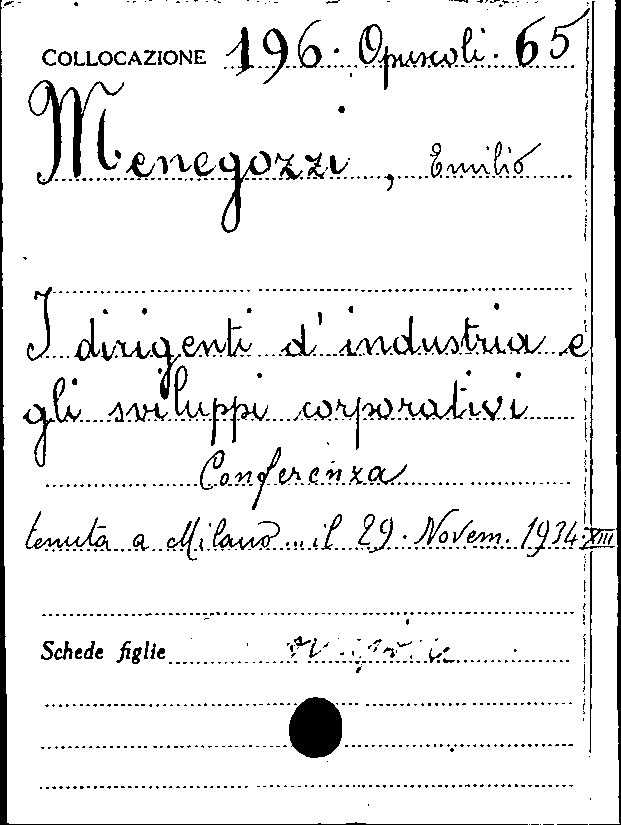 COLLOCAZIONE 196. Opuscoli. 65
Menegozzi, Emilio
I dirigenti d'industria e
gli sviluppi corporativi
Conferenza
tenuta a Milano... il 29. Novem. 1934. XIII
Schede figlie